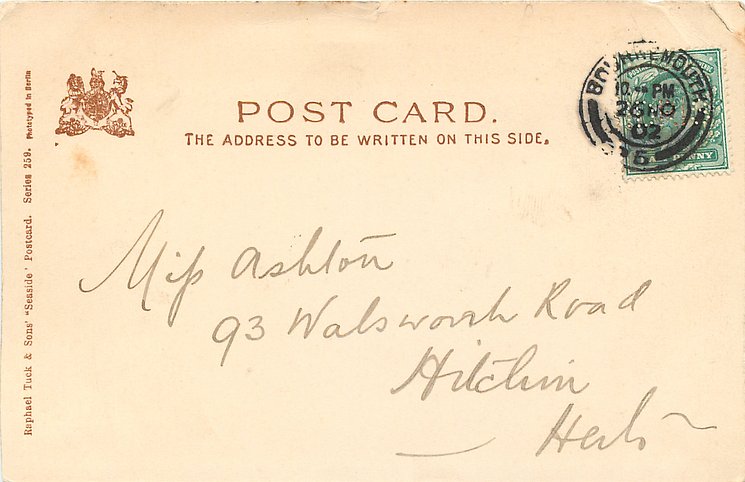 POST CARD.
THE ADDRESS TO BE WRITTEN ON THIS SIDE.
BOURNEMOUTH
PM
26 NO
02
PENNY
Miss Ashton
93 Walsworth Road
Hitchin
Herts
Raphael Tuck & Sons' "Seaside" Postcard. Series 259. Phototyped in Berlin